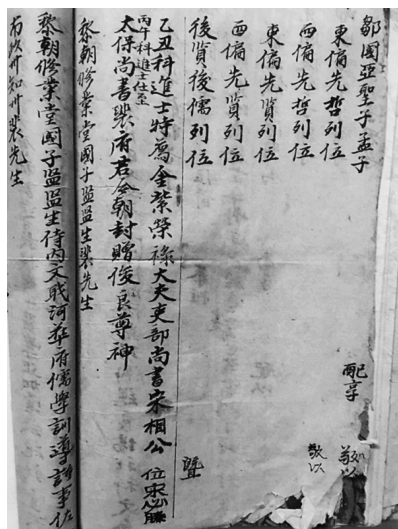 鄒國亞聖子孟子
東偏先哲列位
西偏先哲列位
東偏先贤列位
西偏先贤列位
後贤後儒列位
配享
敬以
敬以
暨
乙丑科進士特蔫金紫榮祿大夫吏部尚書宋相公
位
丙午科進士仕至
太保尚書裴府君今朝封贈俊良尊神
黎朝修業堂國子監監生裴先生
黎朝修業堂國子監監生侍内文職河華府儒學訓導
知州裴先生